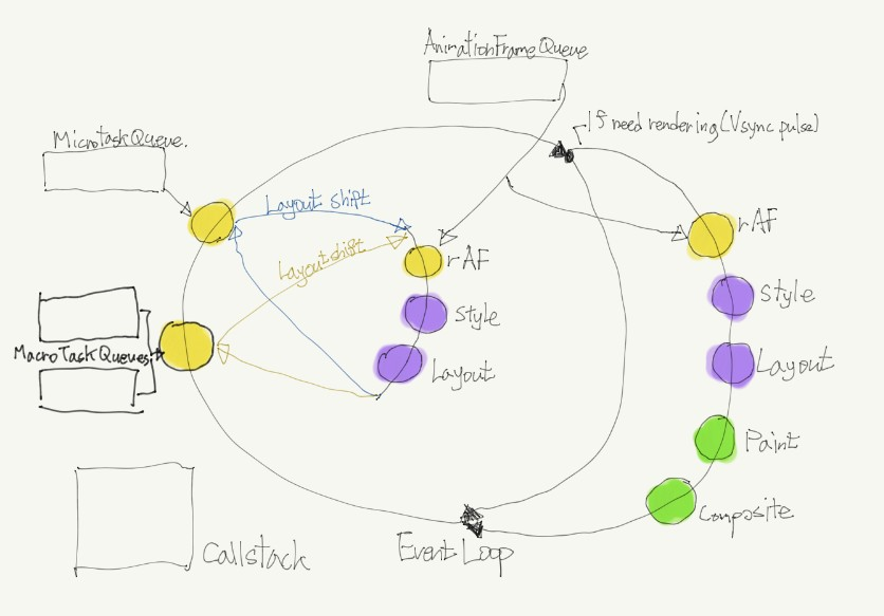 AnimationFrameQueue
If need rendering (Vsync pulse)
MicrotaskQueue.
Layout Shift
rAF
Layout shift
rAF
Style
Style
MacroTaskQueues
Layout
Layout
Paint
Composite
Callstack
Event Loop